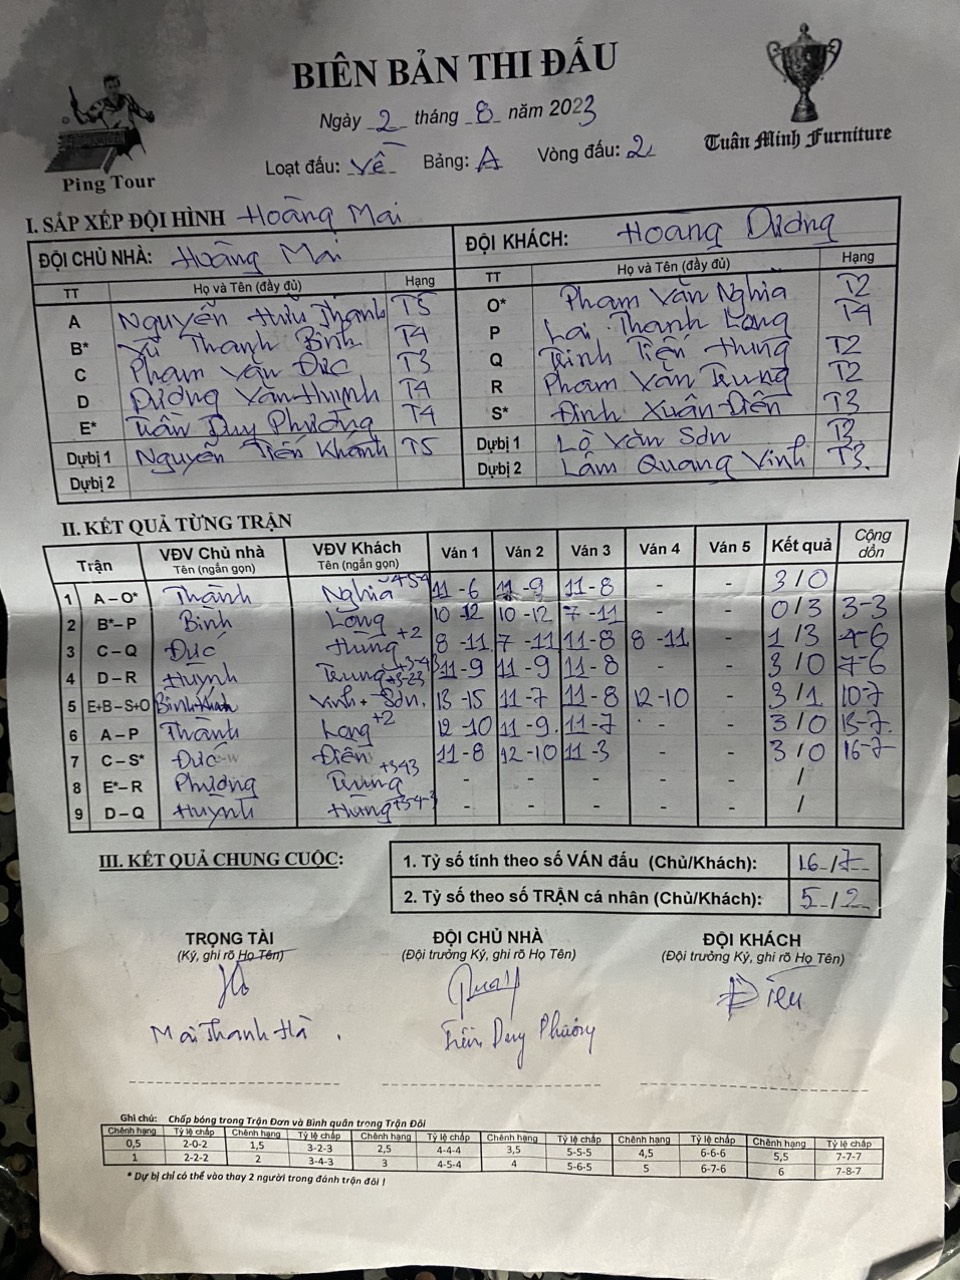 BIÊN BẢN THI ĐẤU
Ngày 2 tháng 8 năm 2023
Loạt đấu: Về Bảng: A Vòng đấu: 2
Ping Tour
Tuân Minh Furniture
I. SẮP XẾP ĐỘI HÌNH Hoàng Mai
ĐỘI CHỦ NHÀ: Hoàng Mai ĐỘI KHÁCH: Hoàng Dương
TT Họ và Tên (đầy đủ) Hạng TT Họ và Tên (đầy đủ) Hạng
A Nguyễn Hữu Thành T5 O* Phạm Văn Nghĩa T2
B* Vũ Thanh Bình T4 P Lại Thanh Long T4
C Phạm Văn Đức T3 Q Trịnh Tiến Hưng T2
D Dương Văn Huỳnh T4 R Phạm Văn Trung T2
E* Trần Duy Phương T4 S* Đinh Xuân Diên T3
Dự bị 1 Nguyễn Tiến Khánh T5 Dự bị 1 Lò Văn Sơn T3
Dự bị 2 Dự bị 2 Lâm Quang Vinh T3
II. KẾT QUẢ TỪNG TRẬN
Trận VĐV Chủ nhà Tên (ngắn gọn) VĐV Khách Tên (ngắn gọn) Ván 1 Ván 2 Ván 3 Ván 4 Ván 5 Kết quả Cộng dồn
1 A – O* Thành Nghĩa 11 - 6 11 - 9 11 - 8 - - 3 / 0
2 B* – P Bình Long 10 - 12 10 - 12 7 - 11 - - 0 / 3 3-3
3 C – Q Đức Hưng +2 8 - 11 7 - 11 11 - 8 8 - 11 - 1 / 3 4-6
4 D – R Huỳnh Trung 11 - 9 11 - 9 11 - 8 - - 3 / 0 7-6
5 E+B – S+O Bình+Khánh Vinh + Sơn 13 - 15 11 - 7 11 - 8 12 - 10 - 3 / 1 10-7
6 A – P Thành Long +2 12 - 10 11 - 9 11 - 7 - - 3 / 0 13-7
7 C – S* Đức Điên 11 - 8 12 - 10 11 - 3 - - 3 / 0 16-7
8 E* – R Phương Trung +343 - - - - - /
9 D – Q Huỳnh Hưng - - - - - /
III. KẾT QUẢ CHUNG CUỘC:
1. Tỷ số tính theo số VÁN đấu (Chủ/Khách): 16 / 7
2. Tỷ số theo số TRẬN cá nhân (Chủ/Khách): 5 / 2
TRỌNG TÀI ĐỘI CHỦ NHÀ ĐỘI KHÁCH
(Ký, ghi rõ Họ Tên) (Đội trưởng Ký, ghi rõ Họ Tên) (Đội trưởng Ký, ghi rõ Họ Tên)
Mai Thanh Hà Trần Duy Phương
Ghi chú: Chấp bóng trong Trận Đơn và Bình quân trong Trận Đôi
Chênh hạng Tỷ lệ chấp Chênh hạng Tỷ lệ chấp Chênh hạng Tỷ lệ chấp Chênh hạng Tỷ lệ chấp Chênh hạng Tỷ lệ chấp Chênh hạng Tỷ lệ chấp
0,5 2-0-2 1,5 3-2-3 2,5 4-4-4 3,5 5-5-5 4,5 6-6-6 5,5 7-7-7
1 2-2-2 2 3-4-3 3 4-5-4 4 5-6-5 5 6-7-6 6 7-8-7
* Dự bị chỉ có thể vào thay 2 người trong đánh trận đôi !